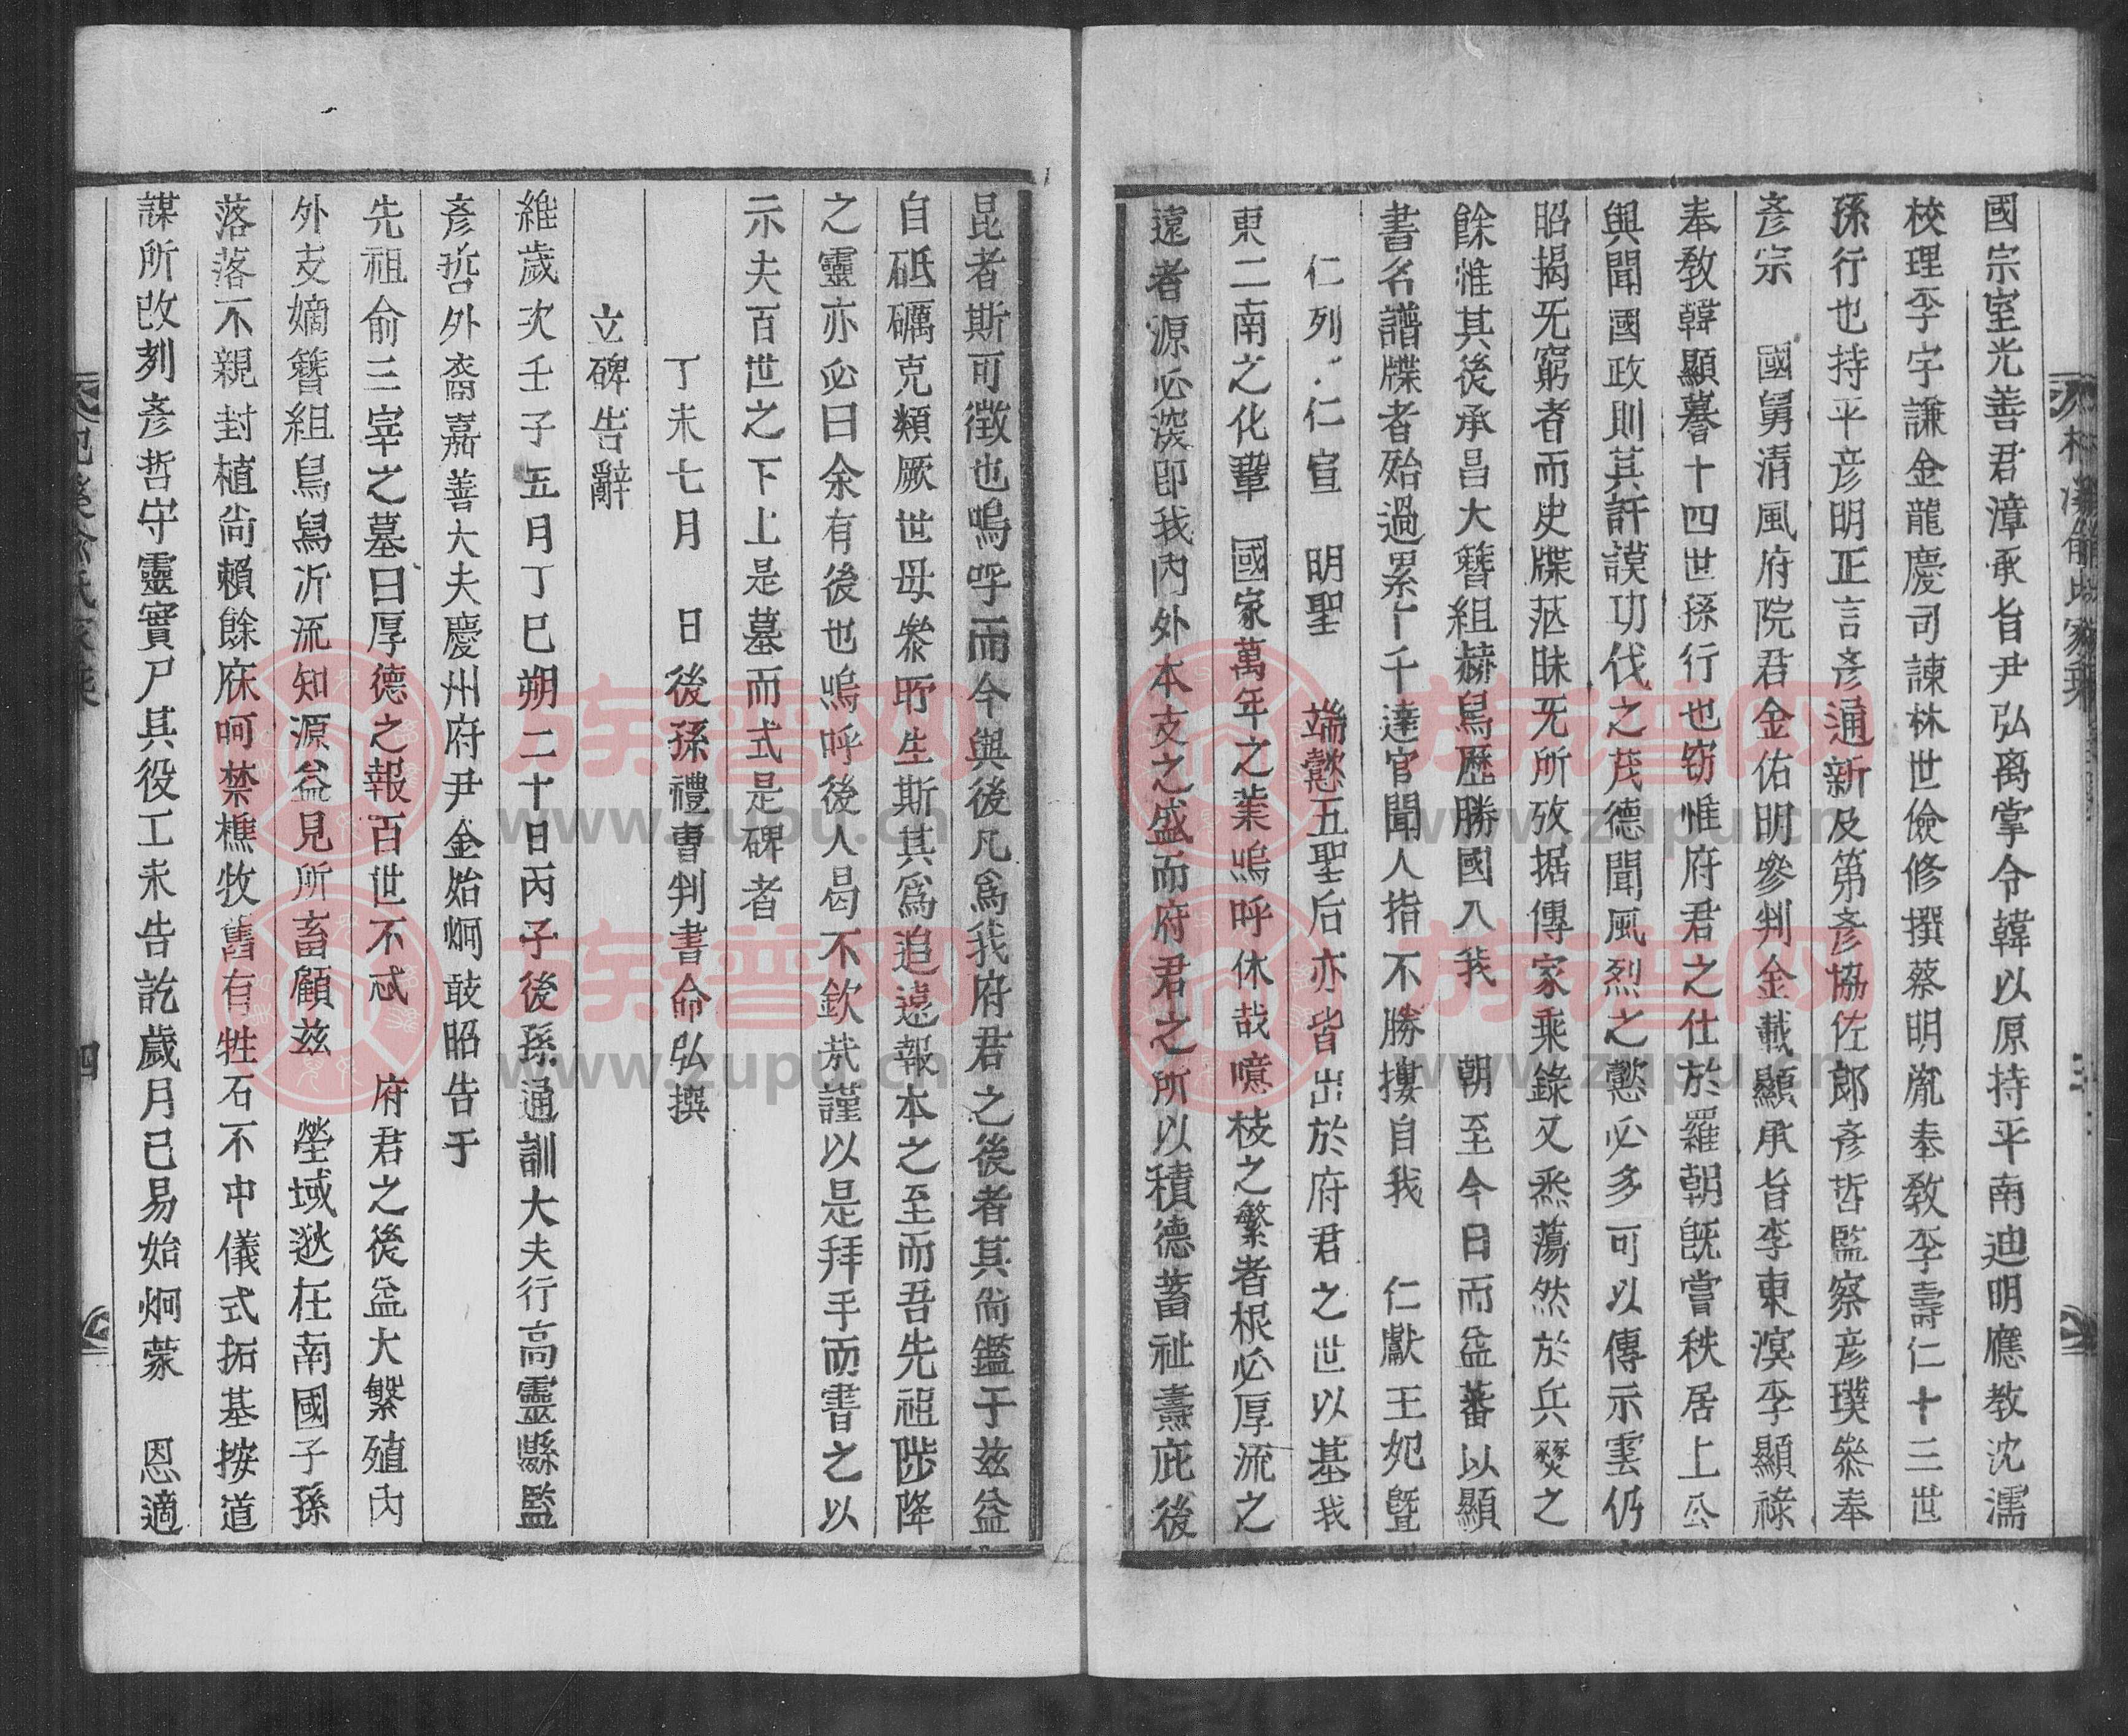 國宗室光善君漳承旨尹弘离掌令韓以原持平南迪明應教沈濡
校理李宇謙金龍慶司諫林世儉修撰蔡明胤奉教李壽仁十三世
孫行也持平彦明正言彦通新及第彦協佐郎彦哲監察彦璞叅奉
彦宗 國舅清風府院君金佑明參判金載顯承旨李東溟李顯祿
奉教韓顯謩十四世孫行也窃惟府君之仕於羅朝旣嘗秩居上公
與聞國政則其訏謨功伐之茂德聞風烈之懿必多可以傳示雲仍
昭揭旡窮者而史牒茫昧旡所攷据傳家乘錄又烝蕩然於兵燹之
餘惟其後承昌大簪組赫舃歷勝國入我 朝至今日而益蕃以顯
書名譜牒者殆過累十千達官聞人指不勝摟自我 仁獻王妃曁
仁列 仁宣 明聖 端懿五聖后亦皆出於府君之世以基我
東二南之化鞏 國家萬年之業嗚呼休哉噫枝之繁者根必厚流之
遠者源必深卽我內外本支之盛而府君之所以積德蓄祉燾庇後
昆者斯可徵也嗚呼而今與後凡爲我府君之後者其尙鑑于兹益
自砥礪克類厥世毋忝所生斯其爲追遠報本之至而吾先祖陟降
之靈亦必曰余有後也嗚呼後人曷不欽哉謹以是拜手而書之以
示夫百世之下上是墓而式是碑者
丁未七月 日後孫禮曹判書命弘撰
立碑告辭
維歲次壬子五月丁巳朔二十日丙子後孫通訓大夫行高靈縣監
彥哲外裔嘉善大夫慶州府尹金始炯敢昭告于
先祖俞三宰之墓曰厚德之報百世不忒 府君之後益大繁殖內
外支嫡簪組舃舃沂流知源益見所畜顧兹 塋域逖在南國子孫
落落不親封植尙賴餘庥呵禁樵牧舊有牲石不中儀式拓基按道
謀所改刻彥哲守靈實尸其役工未告訖歲月已易始炯蒙 恩適
杞溪俞氏家乘
三
四
族谱网
www.zupu.cn
族谱网
www.zupu.cn
族谱网
www.zupu.cn
族谱网
www.zupu.cn